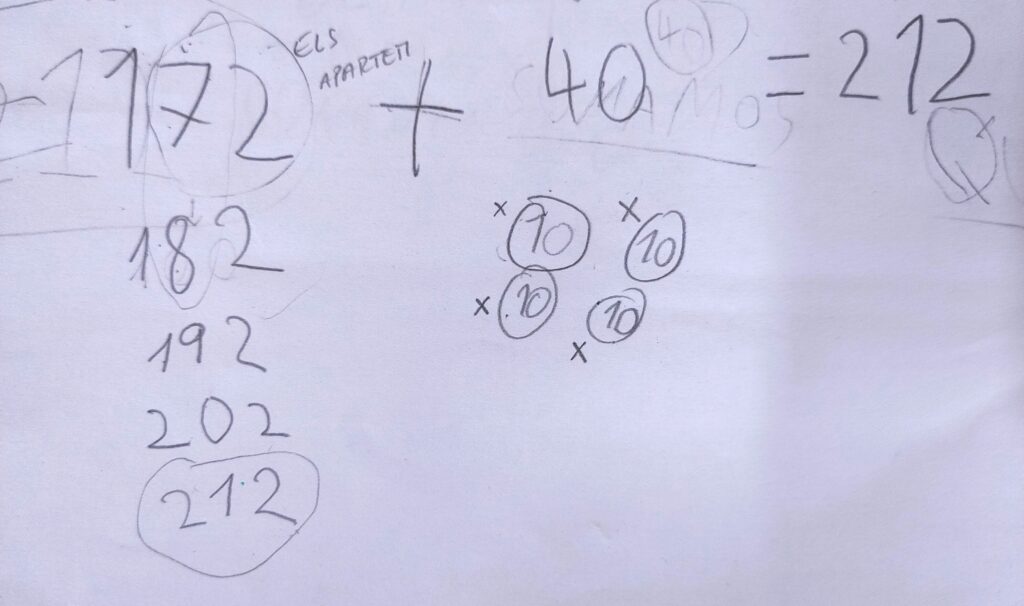 172 + 40 = 212
ELS
APARTEM
40
182
192
202
212
10 10
10 10